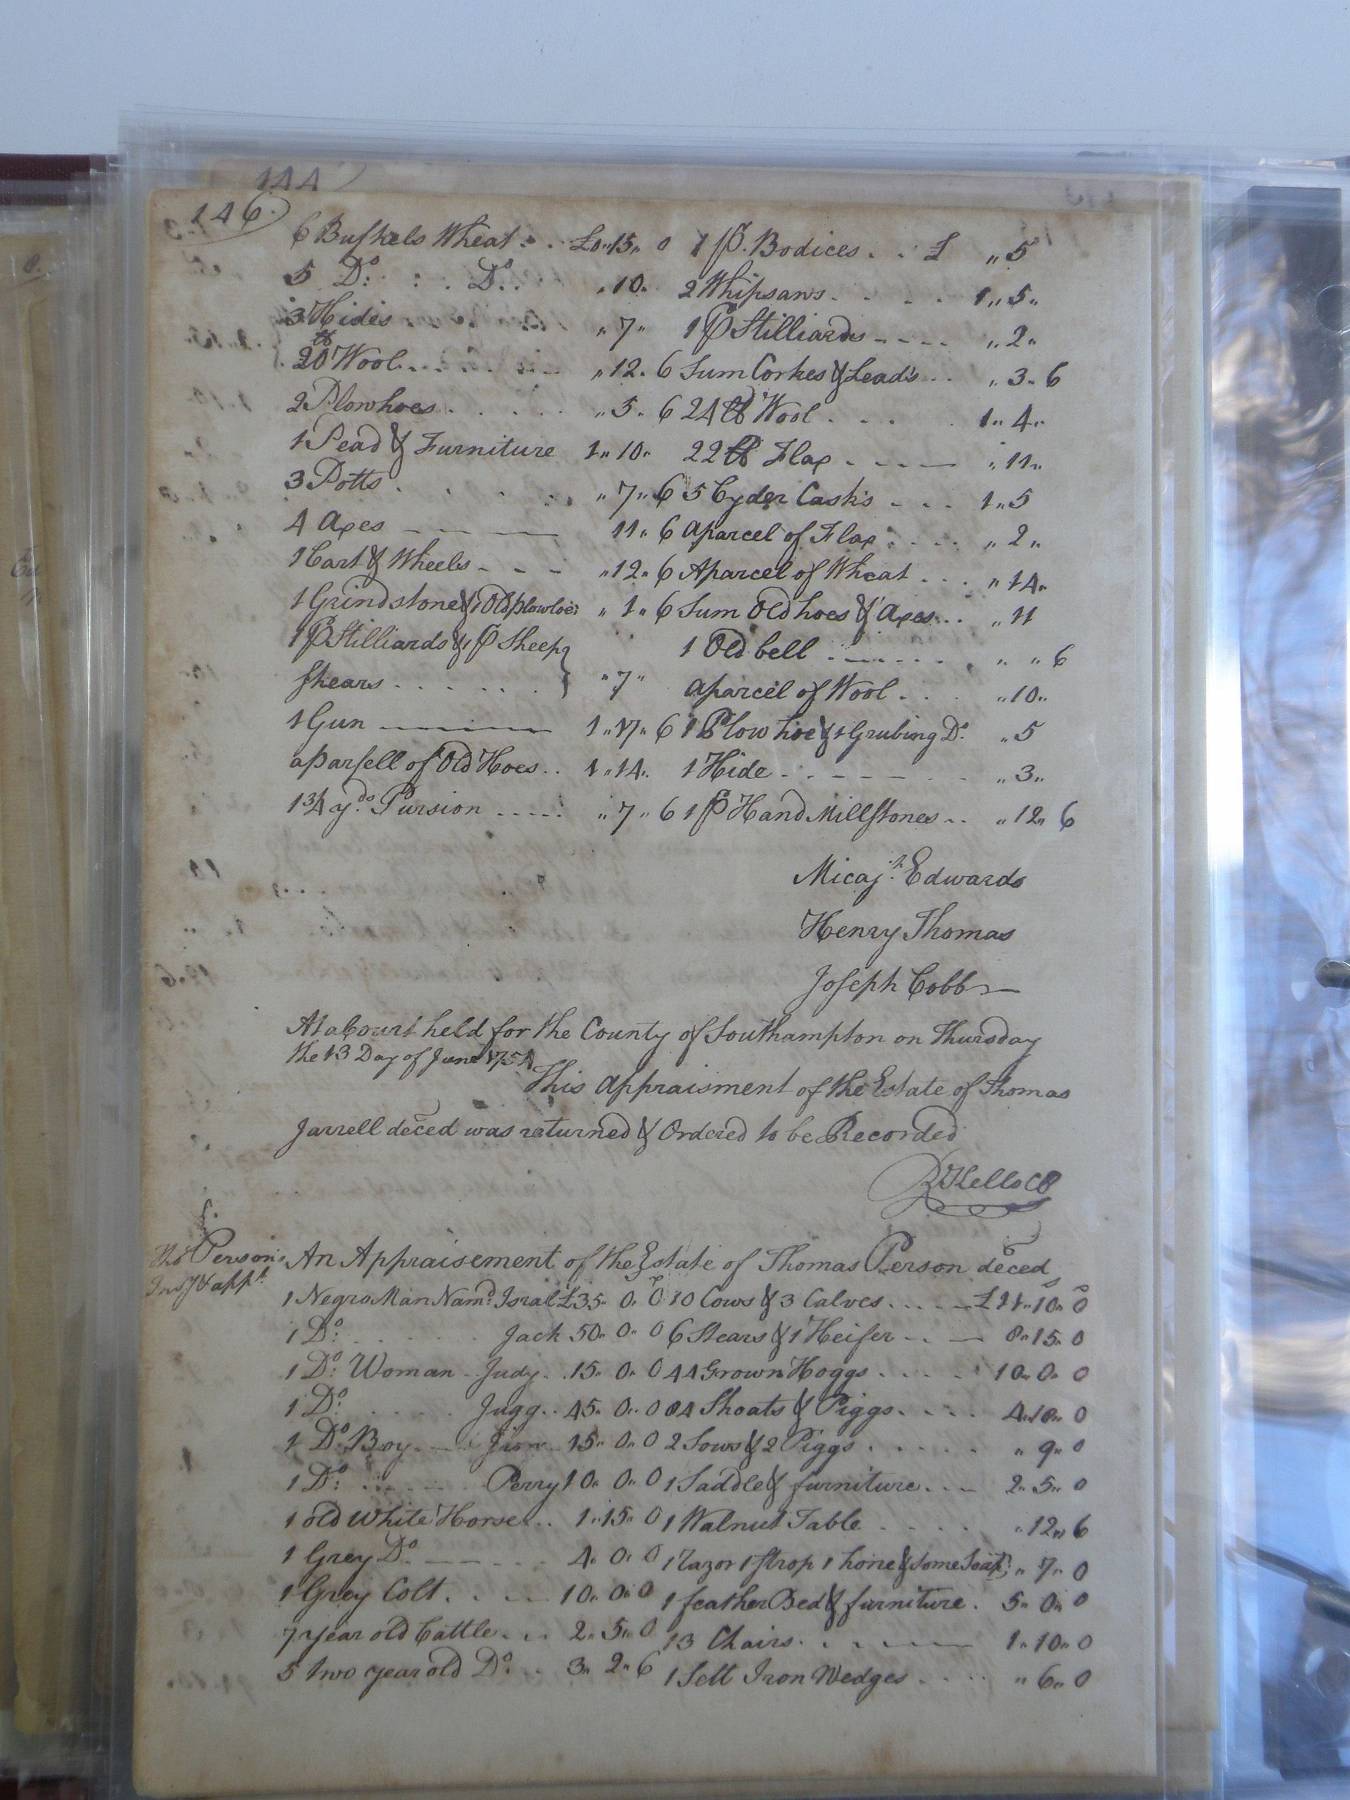 144
146
6 Bushels Wheat . . £0,,15,, 0 1 pr. Bodices . . £ ,, 5
5 Do: : . Do: . . ,, 10,, 2 Whipsaws . . . . 1,, 5,,
3 Hides ,, 7 ,, 1 pr Stilliards - - - - ,, 2 ,,
20 lb Wool . . . . ,, 12,, 6 Sum Corkes & Leads . . ,, 3,, 6
2 Plowhoes . . . . . ,, 5,, 6 24 lb Wool . . . . 1,, 4,,
1 Bead & Furniture 1,, 10,, 22 lb Flax . - - — ,, 11,,
3 Potts . . . . . ,, 7,, 6 5 Cyder Casks - - . 1,, 5
4 Axes — — — 11,, 6 aparcel of Flax : . . . ,, 2 ,,
1 Cart & Wheels - - - ,, 12,, 6 Aparcel of Wheat . . . ,, 14,,
1 Grindstone & 1 Old plowhoe: ,, 1,, 6 Sum Old hoes & Axes . . . ,, 11
1 pr Stilliards & 1 pr Sheep 1 Old bell . . . . . ,, ,, 6
shears . . . . . . ,, 7 ,, aparcel of Wool . . . ,, 10,,
1 Gun ———— 1,, 17,, 6 1 Plow hoe & 1 Grubing Do. ,, 5
aparsell of Old Hoes . . 1,, 14,, 1 Hide . - - - - - ,, 3,,
1 3/4 yds Pursion . . . . . ,, 7,, 6 1 pr Hand Millstones . . ,, 12,, 6
Micajh. Edwards
Henry Thomas
Joseph Cobb —
At a Court held for the County of Southampton on Thursday
the 13 Day of June 1751
This Appraisment of the Estate of Thomas
Jarrell deced was returned & Ordered to be Recorded
R Kello CC
Tho Person's An Appraisement of the Estate of Thomas Person deced
Invy & appt.
1 Negro Man Namd. Israil £35,, 0,, 0 10 Cows & 3 Calves . . . . — £11,, 10,, 0
1 Do: . . . . . Jack 50,, 0,, 0 6 Stears & 1 Heifer - . — 8,, 15,, 0
1 Do: Woman - Judy . . 15,, 0,, 0 44 Grown Hoggs . . . . 10,, 0,, 0
1 Do: . . . . Jugg . . 45,, 0,, 0 84 Shoats & Piggs . . . . 4,, 18,, 0
1 Do Boy . — . 15,, 0,, 0 2 Sows & 2 Piggs . . . . . ,, 9,, 0
1 Do: . . . . Perry 10,, 0,, 0 1 Saddle & furniture . . — 2,, 5,, 0
1 old White Horse . . 1,, 15,, 0 1 Walnut Table . . . . ,, 12,, 6
1 Grey Do — — . . . 4,, 0,, 0 1 Razor 1 strop 1 hone & some Soap; ,, 7,, 0
1 Grey Colt . . . — 10,, 0,, 0 1 feather Bed & furniture . 5,, 0,, 0
7 year old Cattle . . . 2,, 5,, 0 13 Chairs . . . . — 1,, 10,, 0
5 two year old Do . . 3,, 2,, 6 1 Sett Iron Wedges . . . . ,, 6,, 0